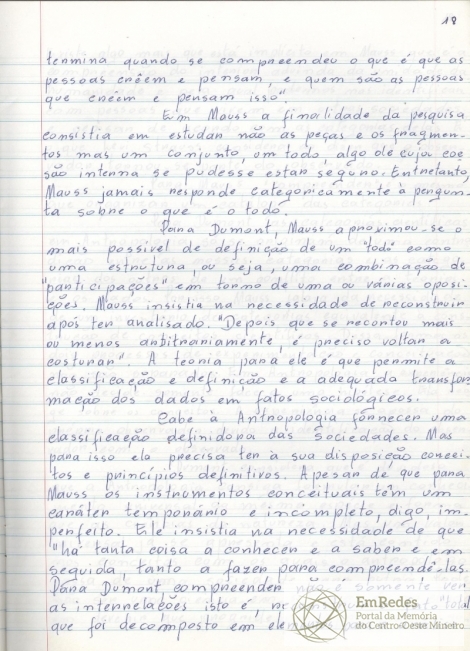 18
termina quando se compreendeu o que é que as
pessoas crêem e pensam, e quem são as pessoas
que crêem e pensam isso".
Em Mauss a finalidade da pesquisa
consistia em estudar não as peças e os fragmen-
tos mas um conjunto, um todo, algo de cuja coe
são interna se pudesse estar seguro. Entretanto,
Mauss jamais responde categoricamente à pergun-
ta sobre o que é o todo.
Para Dumont, Mauss aproximou-se o
mais possível de definição de um "todo" como
uma estrutura, ou seja, uma combinação de
"participações" em torno de uma ou várias oposi-
ções. Mauss insistia na necessidade de reconstruir
após ter analisado. "Depois que se recortou mais
ou menos arbitrariamente, é preciso voltar a
costurar". A teoria para ele é que permite a
classificação e definição e a adequada transfor
mação dos dados em fatos sociológicos.
Cabe à Antropologia fornecer uma
classificação definidora das sociedades. Mas
para isso ela precisa ter à sua disposição concei-
tos e princípios definitivos. Apesar de que para
Mauss os instrumentos conceituais têm um
caráter temporário e incompleto, digo, im-
perfeito. Ele insistia na necessidade de que
"há tanta coisa a conhecer e a saber e em
seguida, tanto a fazer para compreendê-las.
Para Dumont, compreender não é somente ver
as interrelações isto é,
que foi decomposto em
EmRedes
Portal da Memória
do Centro-Oeste Mineiro